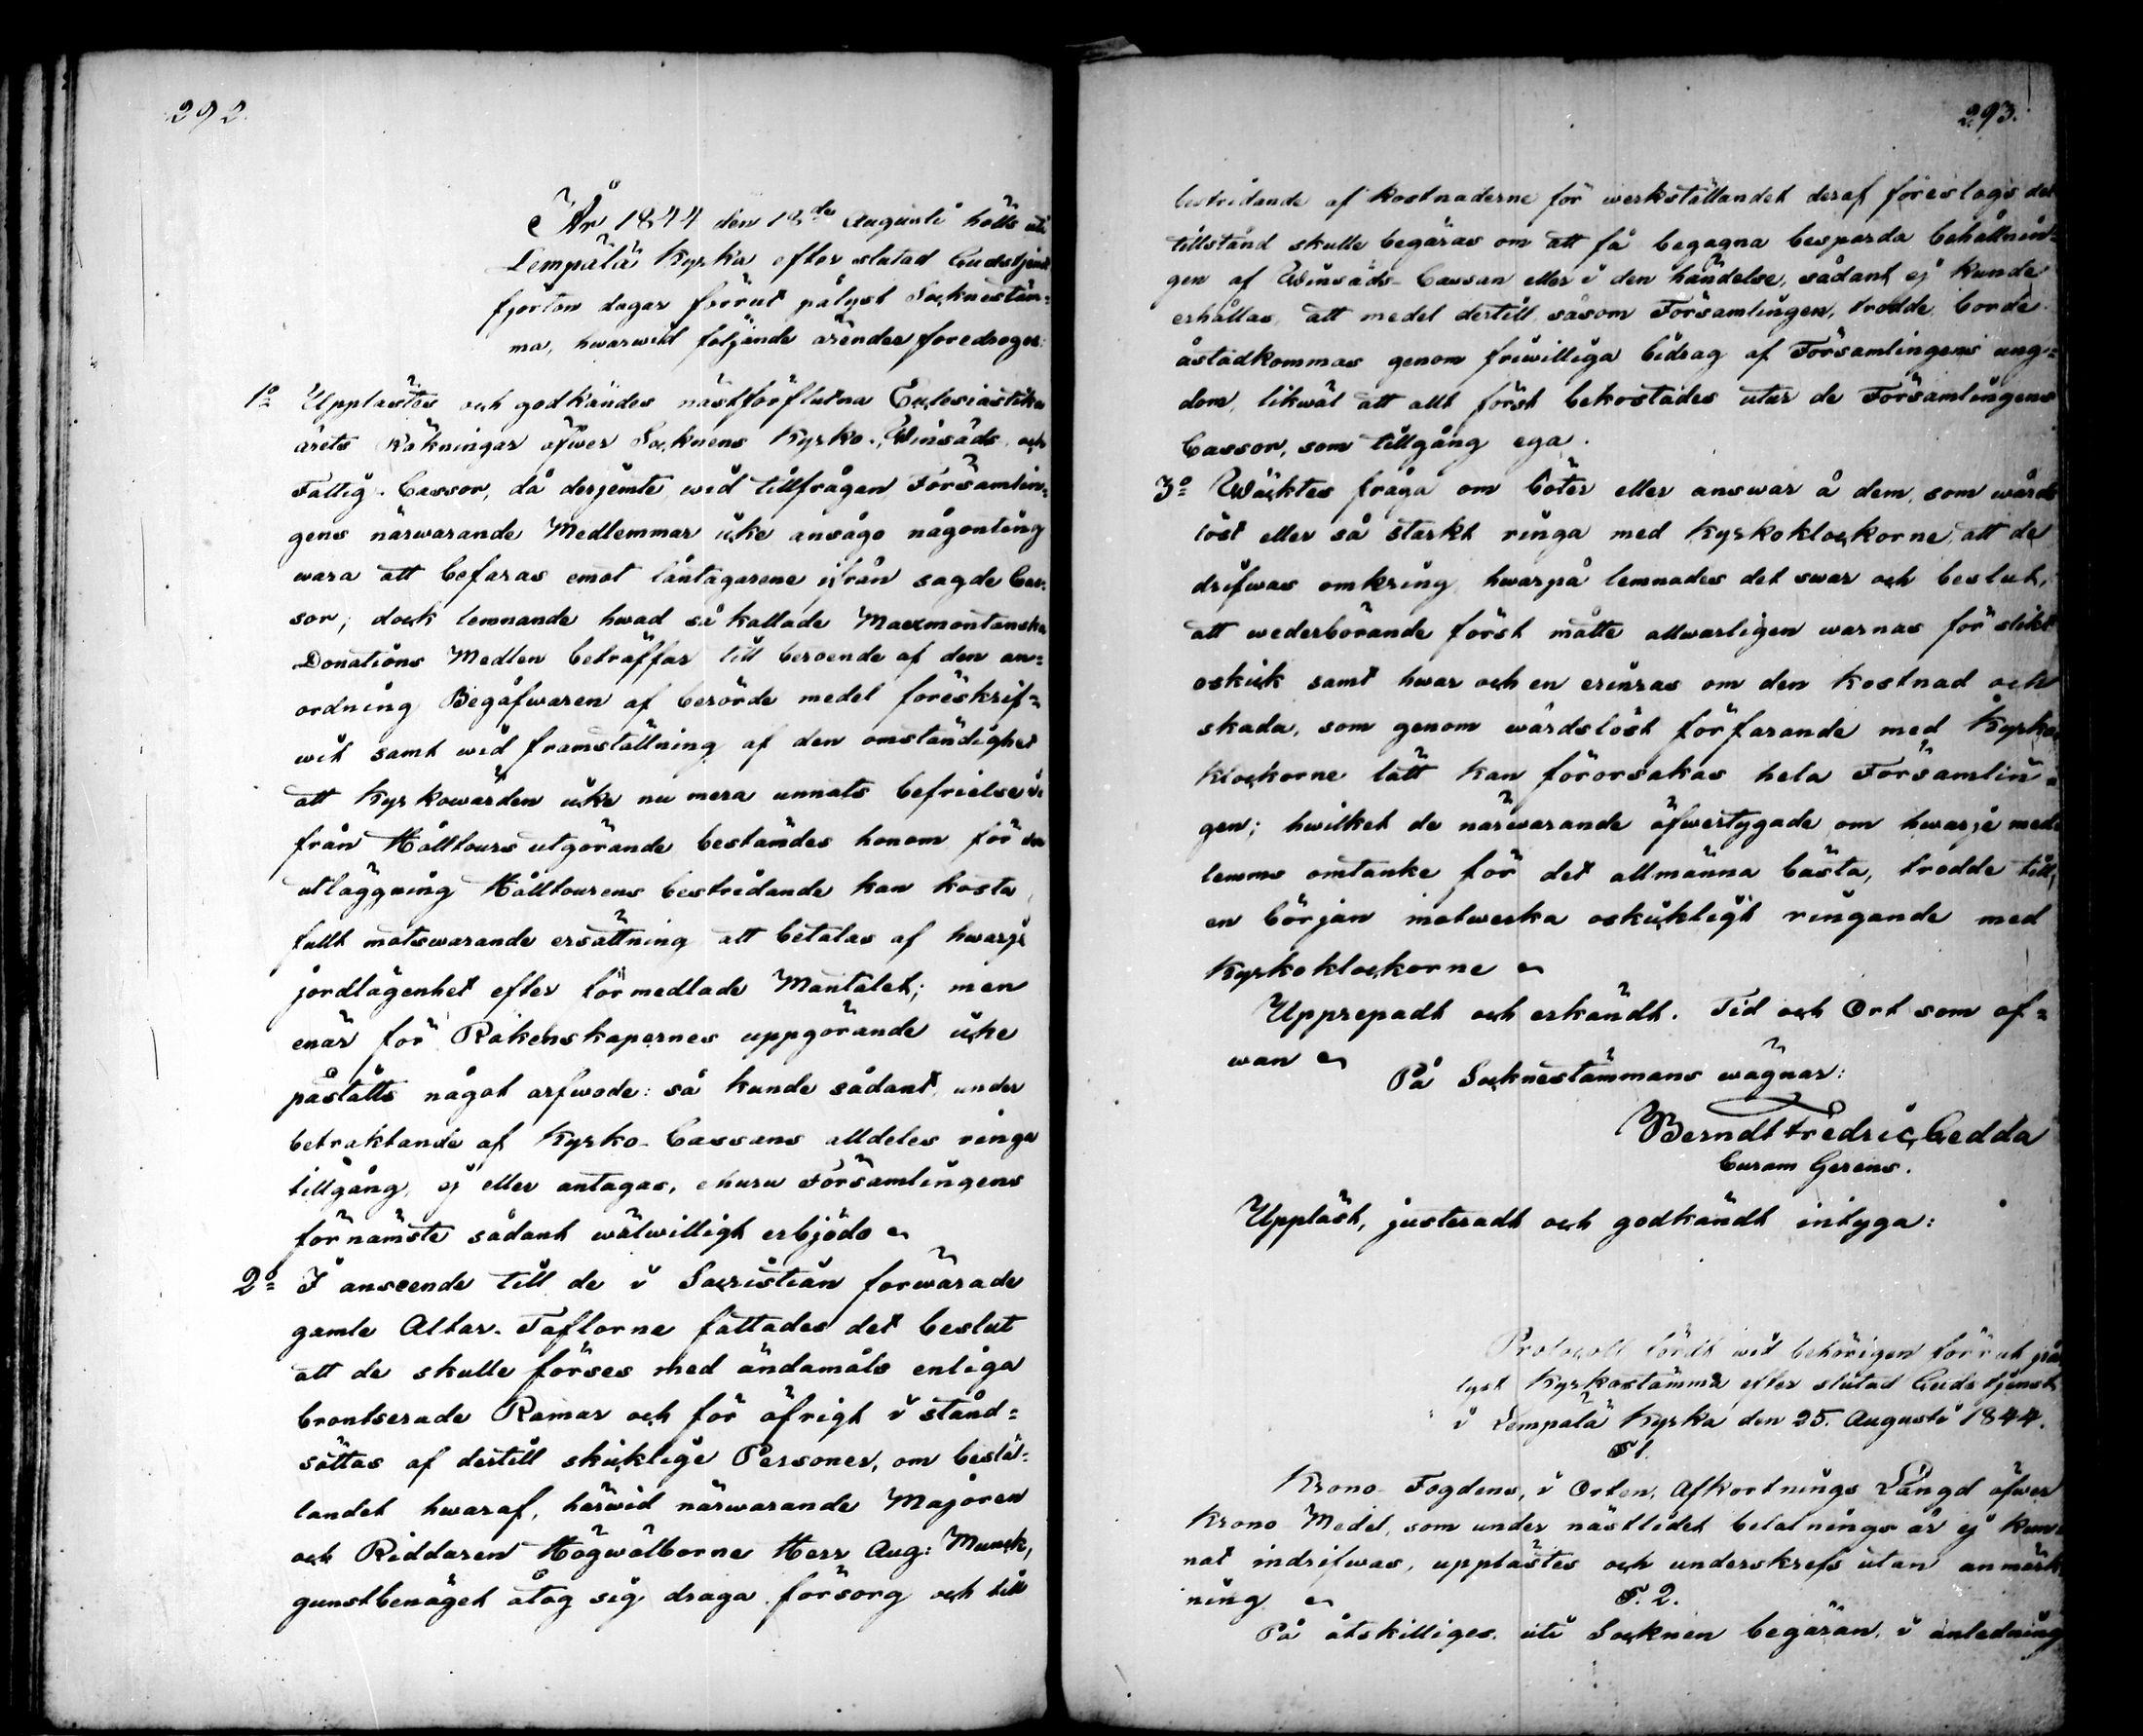 292.
År 1844 den 18de Augusti hölls uti
Lempälä Kyrka efter slutad Gudstjenst
fjorton dagar förrut pålyst Sockenstäm-
ma, hwarwid följande ärender föredrogos:
1o Upplästes och godkändes nästförflutna Ecclesiastika
årets Räkningar öfwer Socknens Kyrko-, Winsäds- och
Fattig-Cassor, då derjemte wid tillfrågan Församlin-
gens närwarande Medlemmar icke ansågo någonting
wara att befaras emot låntagarene ifrån sagde Cas-
sor; dock lemnande hwad så kallade Maexmontanska
Donations Medlen beträffar till beroende af den an-
ordning Begåfwaren af berörde medel föreskrif-
wit samt wid framställning af den omständighet
att Kyrkowärden icke nu mera unnats befrielse i-
från Hålltours utgörande beständes honom för den
utläggning Hålltourens bestridande kan kosta,
fullt motswarande ersättning att betalas af hwarje
jordlägenhet efter förmedlade Mantalet; men
enär för Räkenskapernes uppgörande icke
påståtts något arfwode: så kunde sådant under
betraktande af Kyrko-Cassans alldeles ringa
tillgång ej eller antagas, ehuru Församlingens
förnämste sådant wälwilligt erbjödo
2o I anseende till de i Sacristian förwarade
gamle Altar-Taflorne fattades det beslut
att de skulle förses med ändamåls enliga
brontserade Ramar och för öfrigt i stånd-
sättas af dertill skicklige Personer, om bestäl-
landet hwaraf, härwid närwarande Majoren
och Riddaren Högwälborne Herr Aug: Munck,
gunstbenäget åtog sig draga försorg och till
293.
bestridande af kostnaderne för werkställandet deraf föreslogs det
tillstånd skulle begäras om att få begagna besparda behållnin-
gen af Winsäds-Cassan eller i den händelse, sådant ej kunde
erhållas, att medel dertill såsom Församlingen trodde borde
åstadkommas genom friwilliga bidrag af Församlingens ung-
dom, likwäl att allt först bekostades utur de Församlingens
Cassor, som tillgång ega.
3o Wäcktes fråga om böter eller answar å dem, som wårds
löst eller så starkt ringa med Kyrkoklockorne, att de
drifwas omkring hwarpå lemnades det swar och beslut,
att wederbörande först måtte allwarligen warnas för slikt
oskick samt hwar och en erinras om den kostnad och
skada, som genom wårdslöst förfarande med Kyrko
klockorne lätt kan förorsakas hela Församlin-
gen; hwilket de närwarande öfwertygade om hwarje med-
lemms omtanke för det allmänna bästa, trodde till
en början motwerka oskickligt ringande med
Kyrkoklockorne
Upprepadt och erkändt. Tid och Ort som of-
wan
På Socknestämmans wägnar:
Berndt Fredric Gedda
Curam Gerens.
Uppläst, justeradt och godkändt intyga:
Protocoll fördt wid behörigen förrut på-
lyst Kyrkostämma efter slutad Gudstjenst
i Lempälä Kyrka den 25. Augusti 1844.
§ 1.
Krono Fogdens, i Orten, Afkortnings Längd öfwer
Krono Medel, som under nästlidet betalnings år ej kun-
nat indrifwas, upplästes och underskrefs utan anmärk
ning
§. 2.
På åtskilliges uti Socknen begäran, i anledning